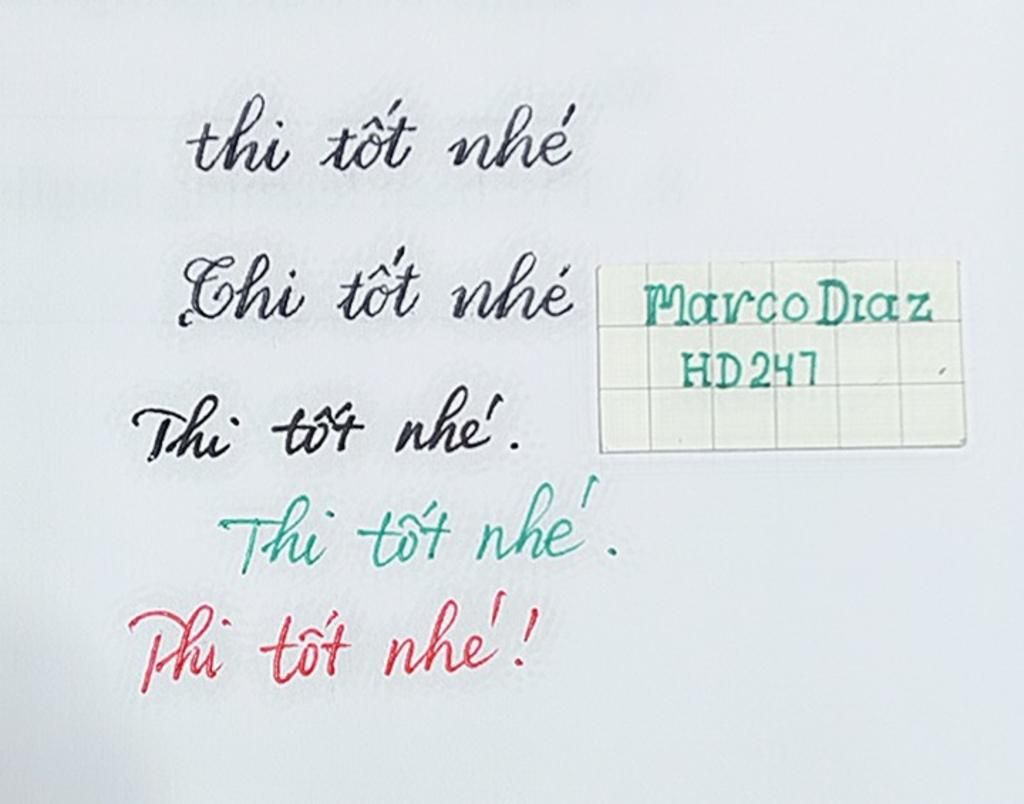 thi tốt nhé
Thi tốt nhé
Marco Diaz
HD247
Thi tốt nhé.
Thi tốt nhé.
Thi tốt nhé!